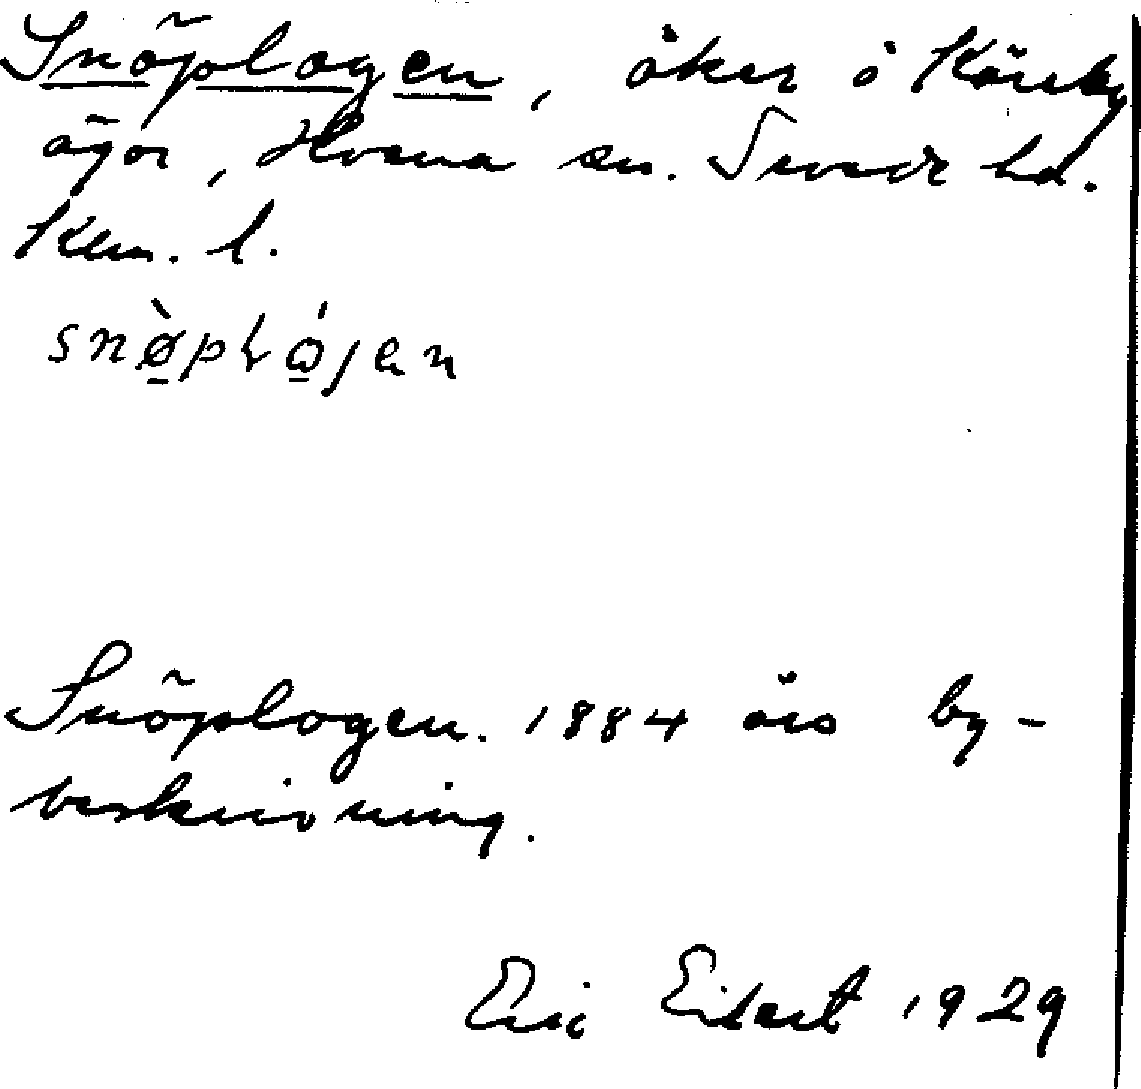 Snöplogen, åker å Käreby
ägor, Hvena sn. Sevede hd.
Klm. l.
snø̱̀pɫó̱jen
Snöplogen. 1884 års by-
beskrivning.
Eric Eckert 1929